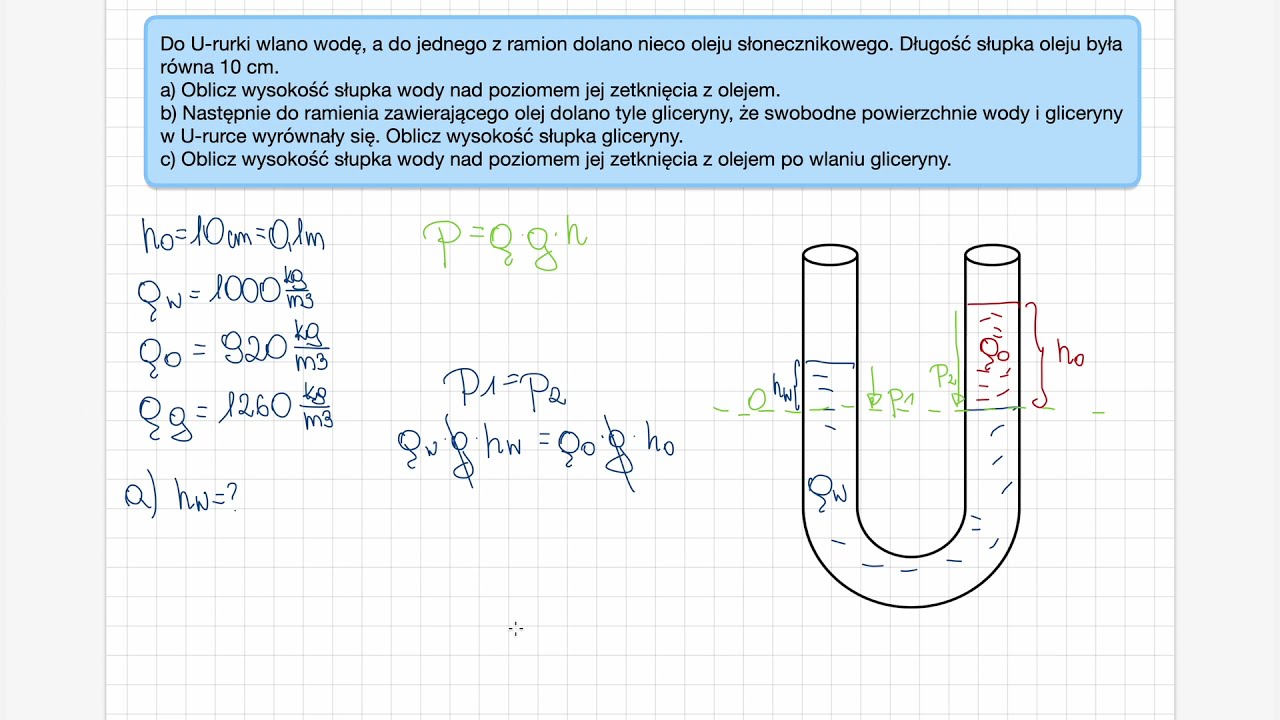 Do U-rurki wlano wodę, a do jednego z ramion dolano nieco oleju słonecznikowego. Długość słupka oleju była
równa 10 cm.
a) Oblicz wysokość słupka wody nad poziomem jej zetknięcia z olejem.
b) Następnie do ramienia zawierającego olej dolano tyle gliceryny, że swobodne powierzchnie wody i gliceryny
w U-rurce wyrównały się. Oblicz wysokość słupka gliceryny.
c) Oblicz wysokość słupka wody nad poziomem jej zetknięcia z olejem po wlaniu gliceryny.
ho=10cm=0,1m
ρw=1000 kg/m3
ρo=920 kg/m3
ρg=1260 kg/m3
a) hw=?
p=ρ·g·h
p1=p2
ρw·g·hw=ρo·g·ho
hw
O
p1
p2
ρo
ho
ρw